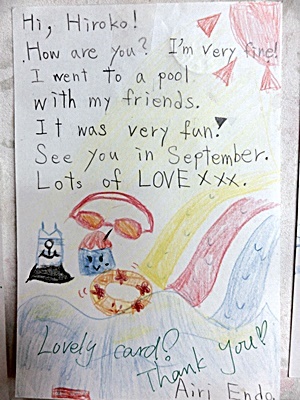 Hi, Hiroko!
How are you? I'm very fine!
I went to a pool
with my friends.
It was very fun!
See you in September.
Lots of LOVE xxx.
Lovely card?
Thank you♡
Airi Endo